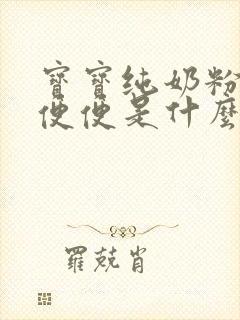 寶寶純奶粉
便便是什麼
羅兢肖